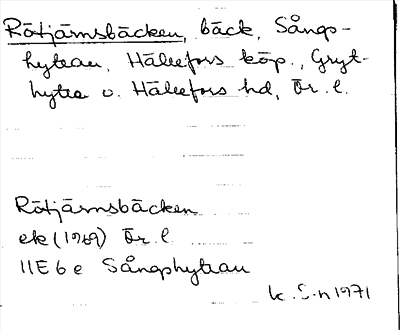 Rötjärnsbäcken, bäck, Sångs-
hyttan, Hällefors köp., Gryt-
hytte o. Hällefors hd, Ör. l.
Rötjärnsbäcken
ek (1969) Ör. l.
11E 6 e Sångshyttan
k. S-n 1971